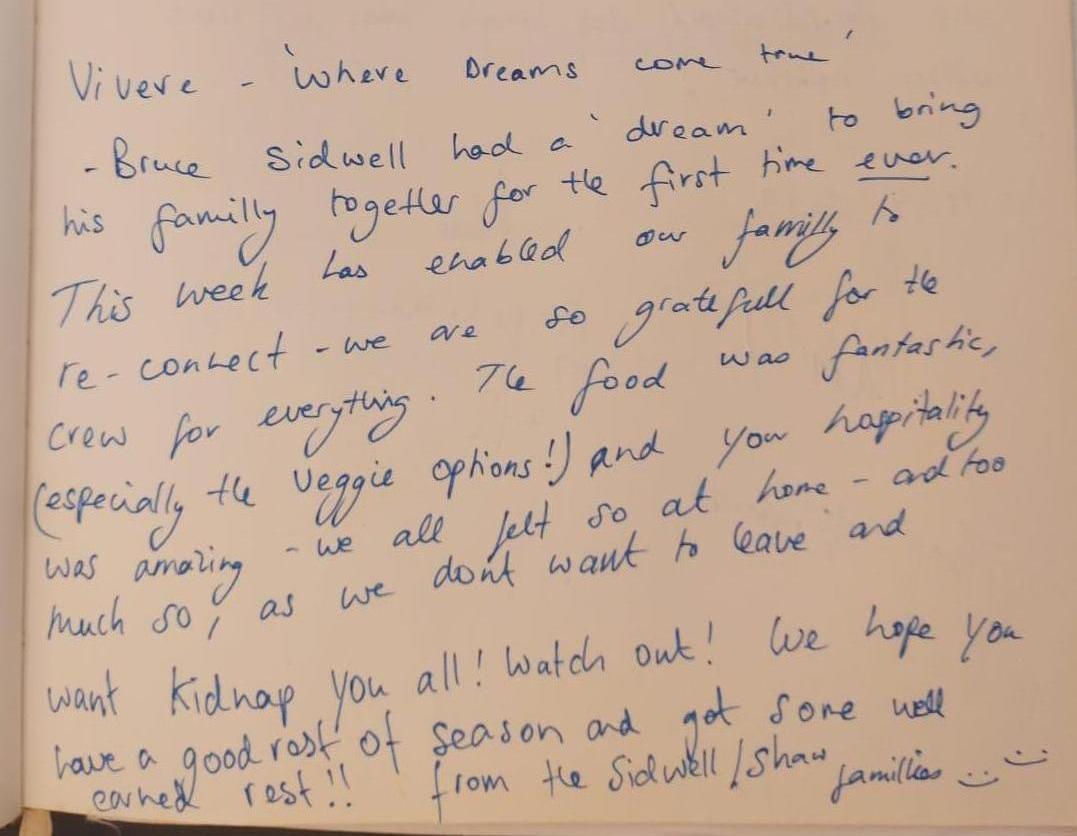 Vivere - 'Where Dreams come true'
- Bruce Sidwell had a 'dream' to bring
his familly together for the first time ever.
This week has enabled our familly to
re-connect - we are so gratefull for the
crew for everything. The food was fantastic,
(especially the Veggie options!) and your hospitality
was amazing - we all felt so at home - and too
much so, as we dont want to leave and
want kidnap you all! Watch out! We hope you
have a good rest of season and get some well
earned rest!! from the Sidwell/Shaw famillies :) :)